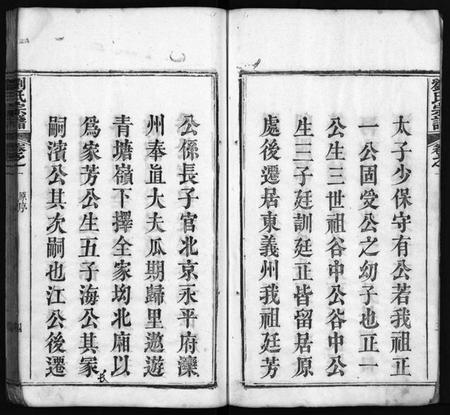 劉氏宗譜
卷之
太子少保守有公若我祖正
一公固受公之幼子也正一
公生三世祖谷中公谷中公
生三子廷訓廷正皆留居原
處後遷居東義州我祖廷芳
公係長子官北京永平府灤
州奉直大夫瓜期歸里遨遊
青塘嶺下擇全家坳北廟以
爲家芳公生五子海公其冢
長
嗣濱公其次嗣也江公後遷
劉氏宗譜
卷之一
原序
四